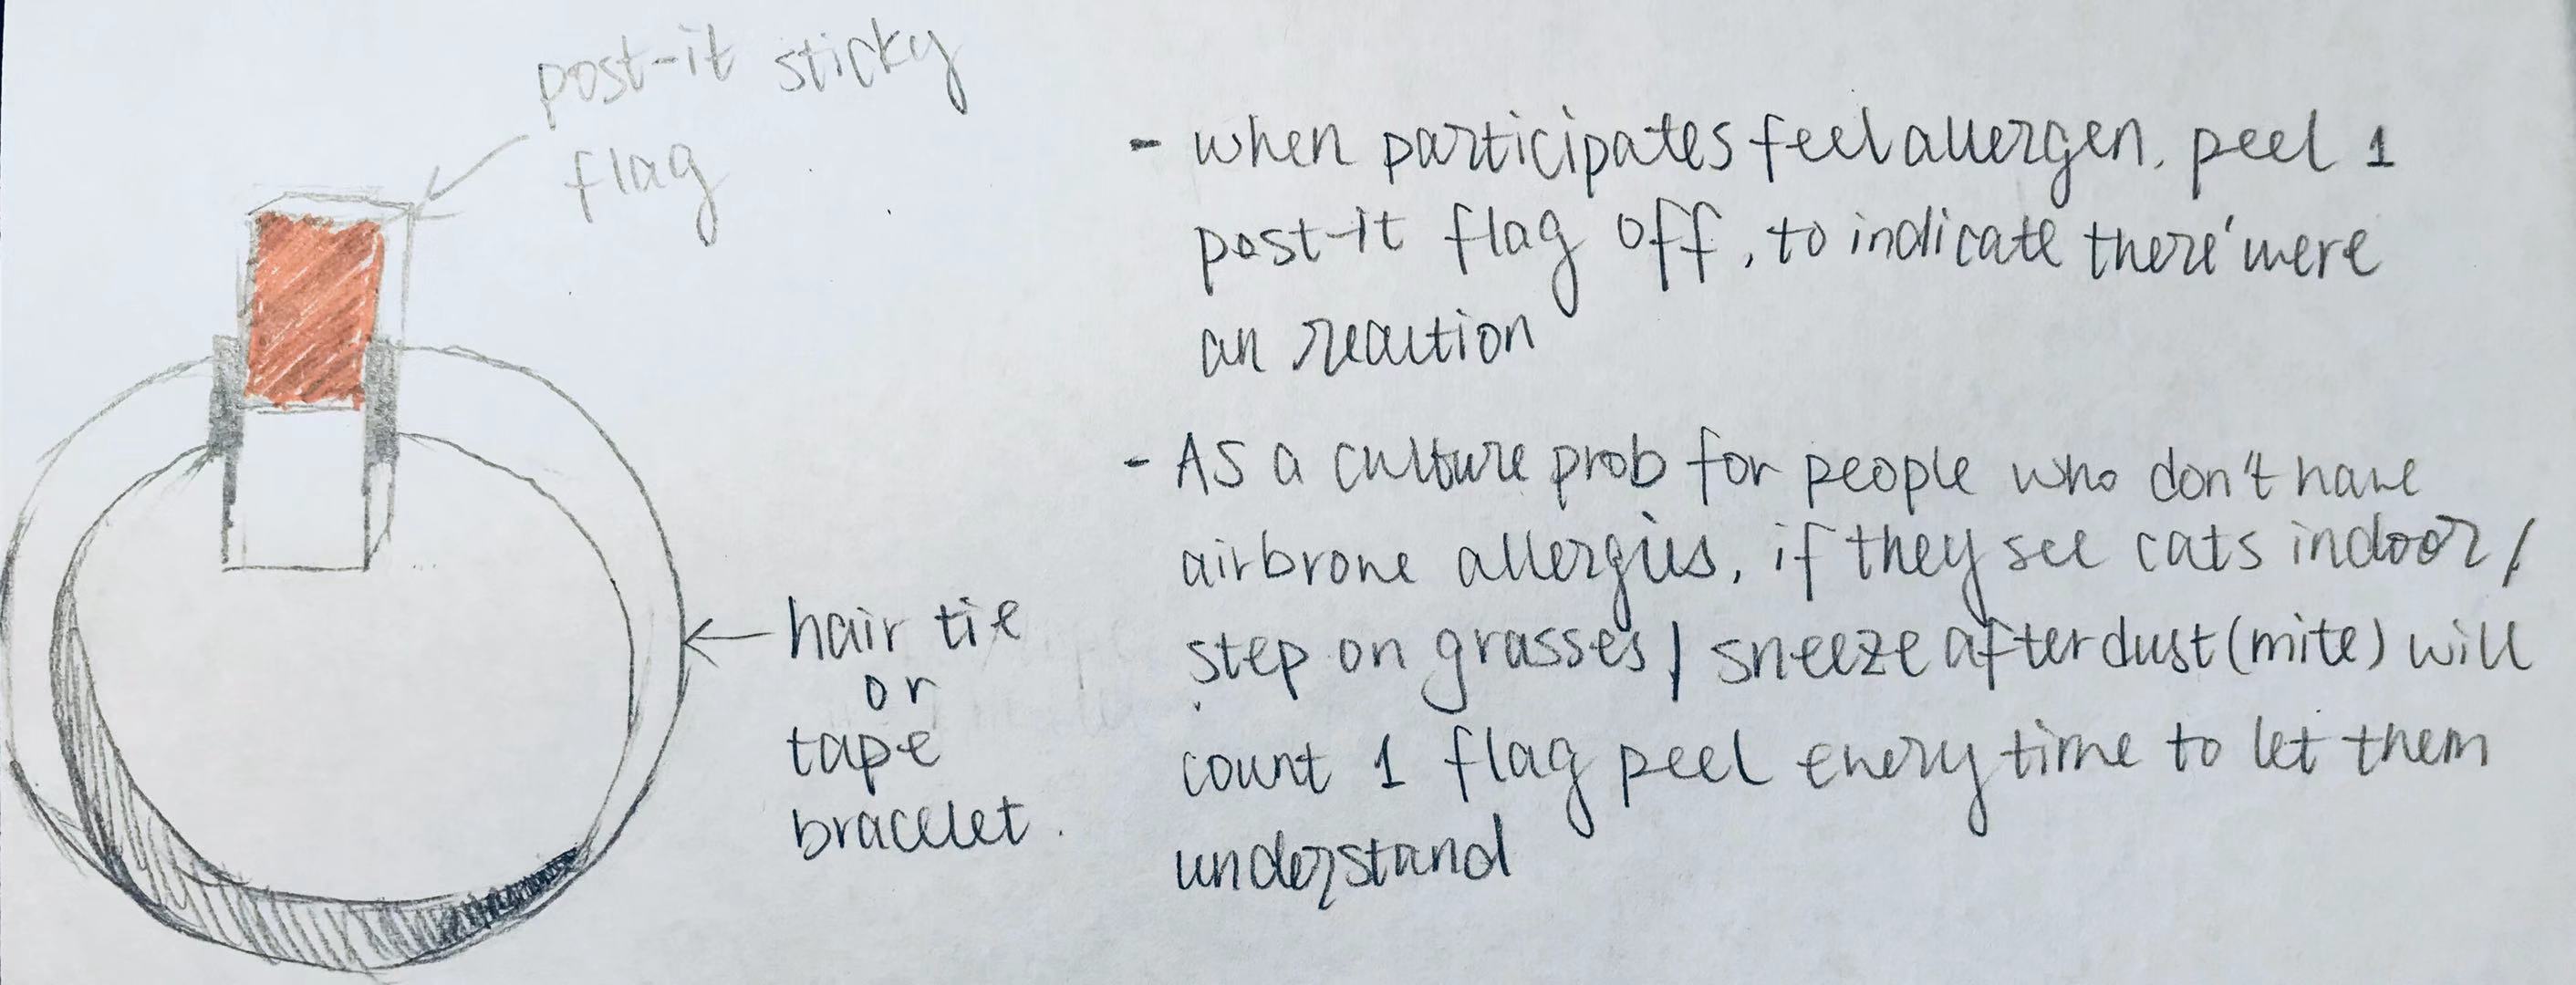 post-it sticky
flag
- when participates feel allergen, peel 1
post-it flag off, to indicate there' were
an reaction
- As a culture prob for people who don't have
airbrone allergies, if they see cats indoor /
step on grasses / sneeze after dust (mite) will
count 1 flag peel every time to let them
understand
hair tie
or
tape
bracelet.